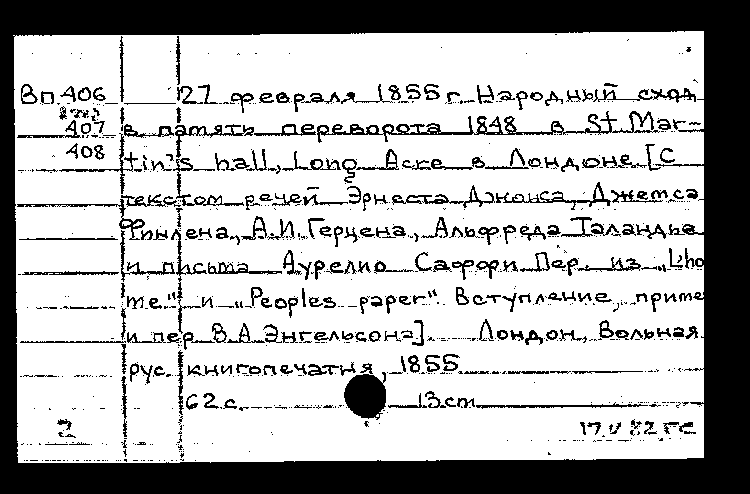 Вп 406 27 февраля 1855 г. Народный сход
407 в память переворота 1848 в St. Mar-
408 tin's hall, Long Acre в Лондоне. [С
текстом речей Эрнеста Джонса, Джемса
Финлена, А.И. Герцена, Альфреда Таландье
и письма Аурелио Саффи. Пер. из „L'ho
me" и „Peoples paper". Вступление, приме
и пер В.А. Энгельсона]. Лондон, Вольная
рус. книгопечатня, 1855
62 с. 13 cm
2 17 V 82 ГС